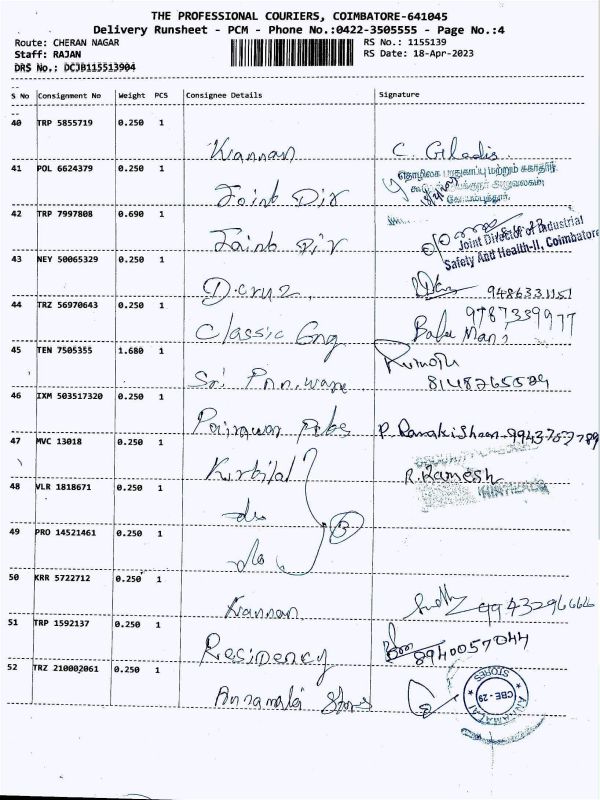 THE PROFESSIONAL COURIERS, COIMBATORE-641045
Delivery Runsheet - PCM - Phone No.:0422-3505555 - Page No.:4
Route: CHERAN NAGAR RS No.: 1155139
Staff: RAJAN RS Date: 18-Apr-2023
DRS No.: DCJB115513904
S No Consignment No Weight PCS Consignee Details Signature
40 TRP 5855719 0.250 1
Kannan C. Giladis
41 POL 6624379 0.250 1
தொழிலக பாதுகாப்பு மற்றும் சுகாதார
Joint Dir
42 TRP 7997808 0.690 1
Joint Dir
Joint Director of Industrial
Safety And Health-II, Coimbatore
43 NEY 50065329 0.250 1
D.cruz 9486331151
44 TRZ 56970643 0.250 1
9787339977
Classic Eng Babu Mani
45 TEN 7505355 1.680 1
Sri
46 IXM 503517320 0.250 1
47 MVC 13018 0.250 1
R.Ramesh
48 VLR 1818671 0.250 1
do
3
49 PRO 14521461 0.250 1
do
50 KRR 5722712 0.250 1
Kannan 9943296666
51 TRP 1592137 0.250 1
Residency 8940057044
52 TRZ 210002061 0.250 1
Annamalai Stores
ANNAMALAI STORES
CBE-29